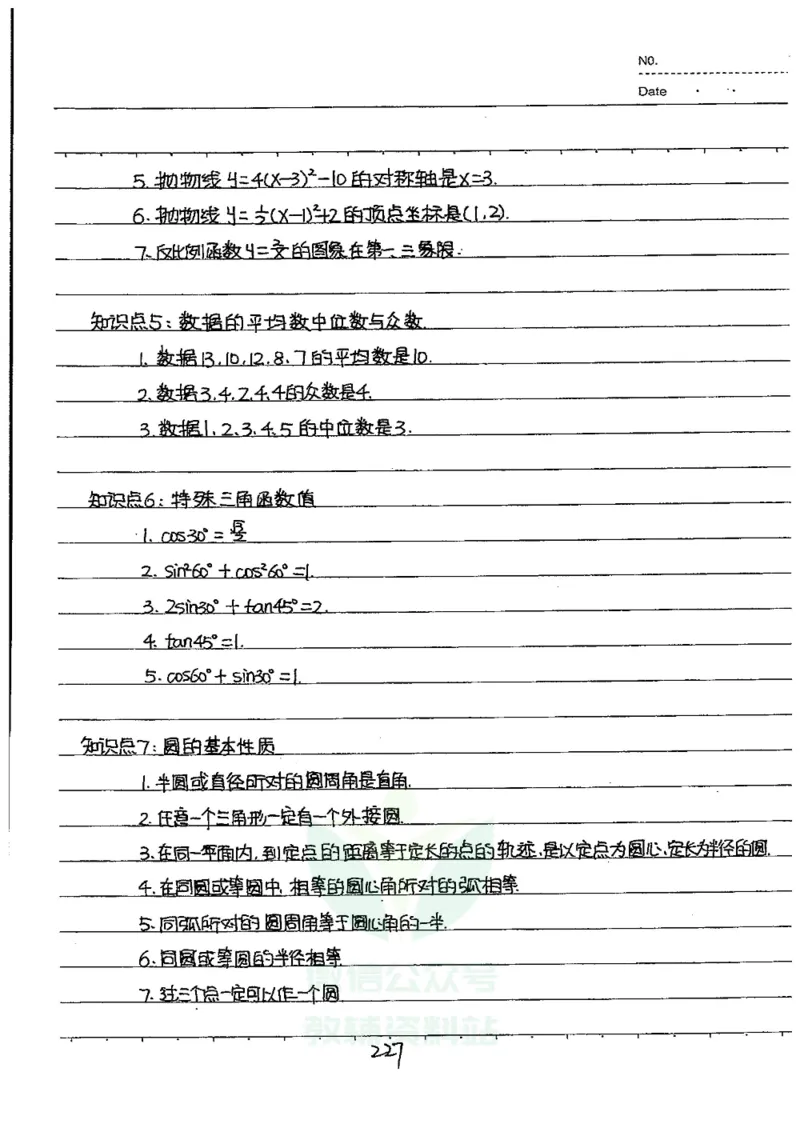 NO.
Date
5. 抛物线 y=4(x-3)²-10 的对称轴是x=3.
6. 抛物线 y=½(x-1)²+2 的顶点坐标是(1,2).
7. 反比例函数 y=2/x 的图象在第一、三象限.
知识点5: 数据的平均数中位数与众数.
1. 数据13,10,12,8,7的平均数是10.
2. 数据3,4,2,4,4的众数是4.
3. 数据1,2,3,4,5的中位数是3.
知识点6: 特殊三角函数值
1. cos30°=√3/2
2. sin²60°+cos²60°=1.
3. 2sin30°+tan45°=2.
4. tan45°=1.
5. cos60°+sin30°=1.
知识点7: 圆的基本性质
1. 半圆或直径所对的圆周角是直角.
2. 任意一个三角形一定有一个外接圆.
3. 在同一平面内,到定点的距离等于定长的点的轨迹,是以定点为圆心,定长为半径的圆.
4. 在同圆或等圆中,相等的圆心角所对的弧相等
5. 同弧所对的圆周角等于圆心角的一半.
6. 同圆或等圆的半径相等
7. 过三个点一定可以作一个圆
微信公众号
教辅资料站
227